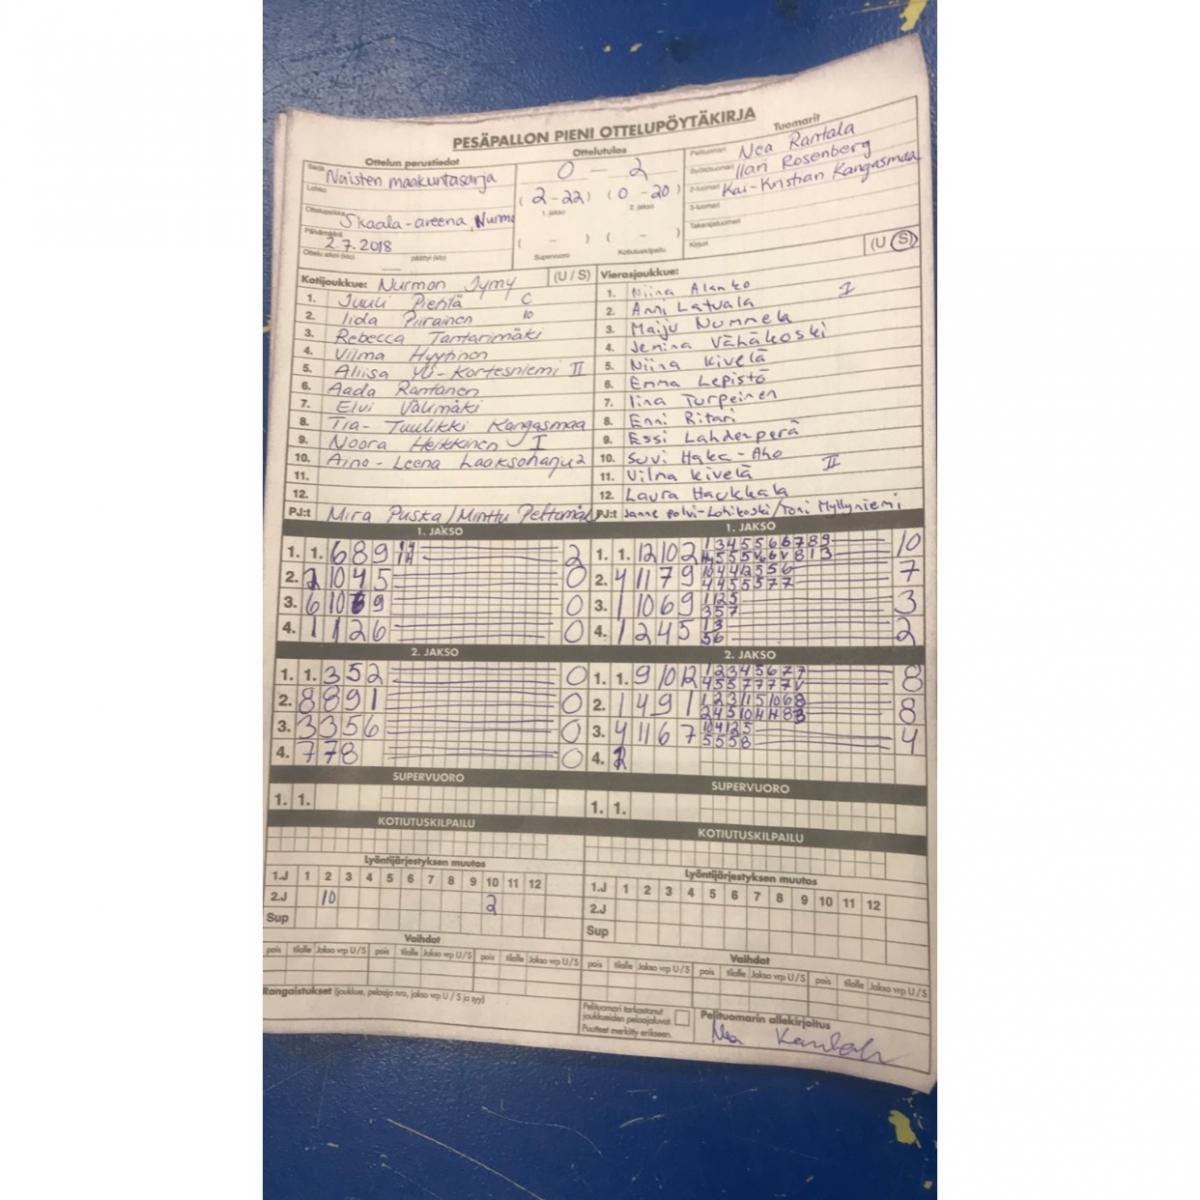 PESÄPALLON PIENI OTTELUPÖYTÄKIRJA
Ottelun perustiedot
Ottelutulos
Tuomarit
Sarja Naisten maakuntasarja
Lohko
Ottelupaikka Skaala-areena, Nurmo
Päivämäärä 2.7.2018
Ottelu alkoi (klo) päättyi (klo)
0 - 2
(2-22) (0-20)
1. jakso 2. jakso
( - ) ( - )
Supervuoro Kotiutuskilpailu
Pelituomari Nea Rantala
Syöttötuomari Ilari Rosenberg
2-tuomari Kai-Kristian Kangasmaa
3-tuomari
Takarajatuomari
Kirjuri
Kotijoukkue: Nurmon Jymy (U / S)
1. Juuli Pientä C
2. Iida Piirainen 10
3. Rebecca Tantarimäki
4. Vilma Hyytinen
5. Aliisa Yli-Kortesniemi II
6. Aada Rantanen
7. Elvi Välimäki
8. Tia-Tuulikki Kangasmaa
9. Noora Heikkinen I
10. Aino-Leena Laaksoharju 2
11.
12.
PJ:t Mira Puska / Minttu
Vierasjoukkue: (U S)
1. Niina Alanko I
2. Anni Latvala
3. Maiju Nummela
4. Jenina Vähäkoski
5. Niina Kivelä
6. Emma Lepistö
7. Iina Turpeinen
8. Enni Ritari
9. Essi Lahdenperä
10. Suvi Haka-Aho
11. Vilma Kivelä II
12. Laura Haukkala
PJ:t Janne Polvi-Lohikoski / Toni Myllyniemi
1. JAKSO
1. 1. 6 8 9 2
2. 2 10 4 5 0
3. 6 10 9 0
4. 1 1 2 6 0
1. JAKSO
1. 1. 12 10 2 1 3 4 5 5 6 6 7 8 9 10
2. 4 11 7 9 10 4 4 2 5 5 6 7
4 4 5 5 5 7 7
3. 1 10 6 9 1 2 5 3
3 5 7
4. 1 2 4 5 1 3 2
5 6
2. JAKSO
1. 1. 3 5 2 0
2. 8 8 9 1 0
3. 3 3 5 6 0
4. 7 7 8 0
2. JAKSO
1. 1. 9 10 12 1 2 3 4 5 6 7 7 8
4 5 5 7 7 7 7 V
2. 1 4 9 1 8
3. 4 11 6 7 10 4 12 5 4
5 5 5 8
4. 2
SUPERVUORO
1. 1.
SUPERVUORO
1. 1.
KOTIUTUSKILPAILU
KOTIUTUSKILPAILU
Lyöntijärjestyksen muutos
1.J 1 2 3 4 5 6 7 8 9 10 11 12
2.J 10 2
Sup
Lyöntijärjestyksen muutos
1.J 1 2 3 4 5 6 7 8 9 10 11 12
2.J
Sup
Vaihdot
pois tilalle Jakso vrp U/S pois tilalle Jakso vrp U/S pois tilalle Jakso vrp U/S
Vaihdot
pois tilalle Jakso vrp U/S pois tilalle Jakso vrp U/S pois tilalle Jakso vrp U/S
Rangaistukset (joukkue, pelaaja nro, jakso vrp U / S ja syy)
Pelituomari tarkastanut
joukkueiden pelaajaluvat.
Puutteet merkitty erikseen.
Pelituomarin allekirjoitus
Nea Rantala